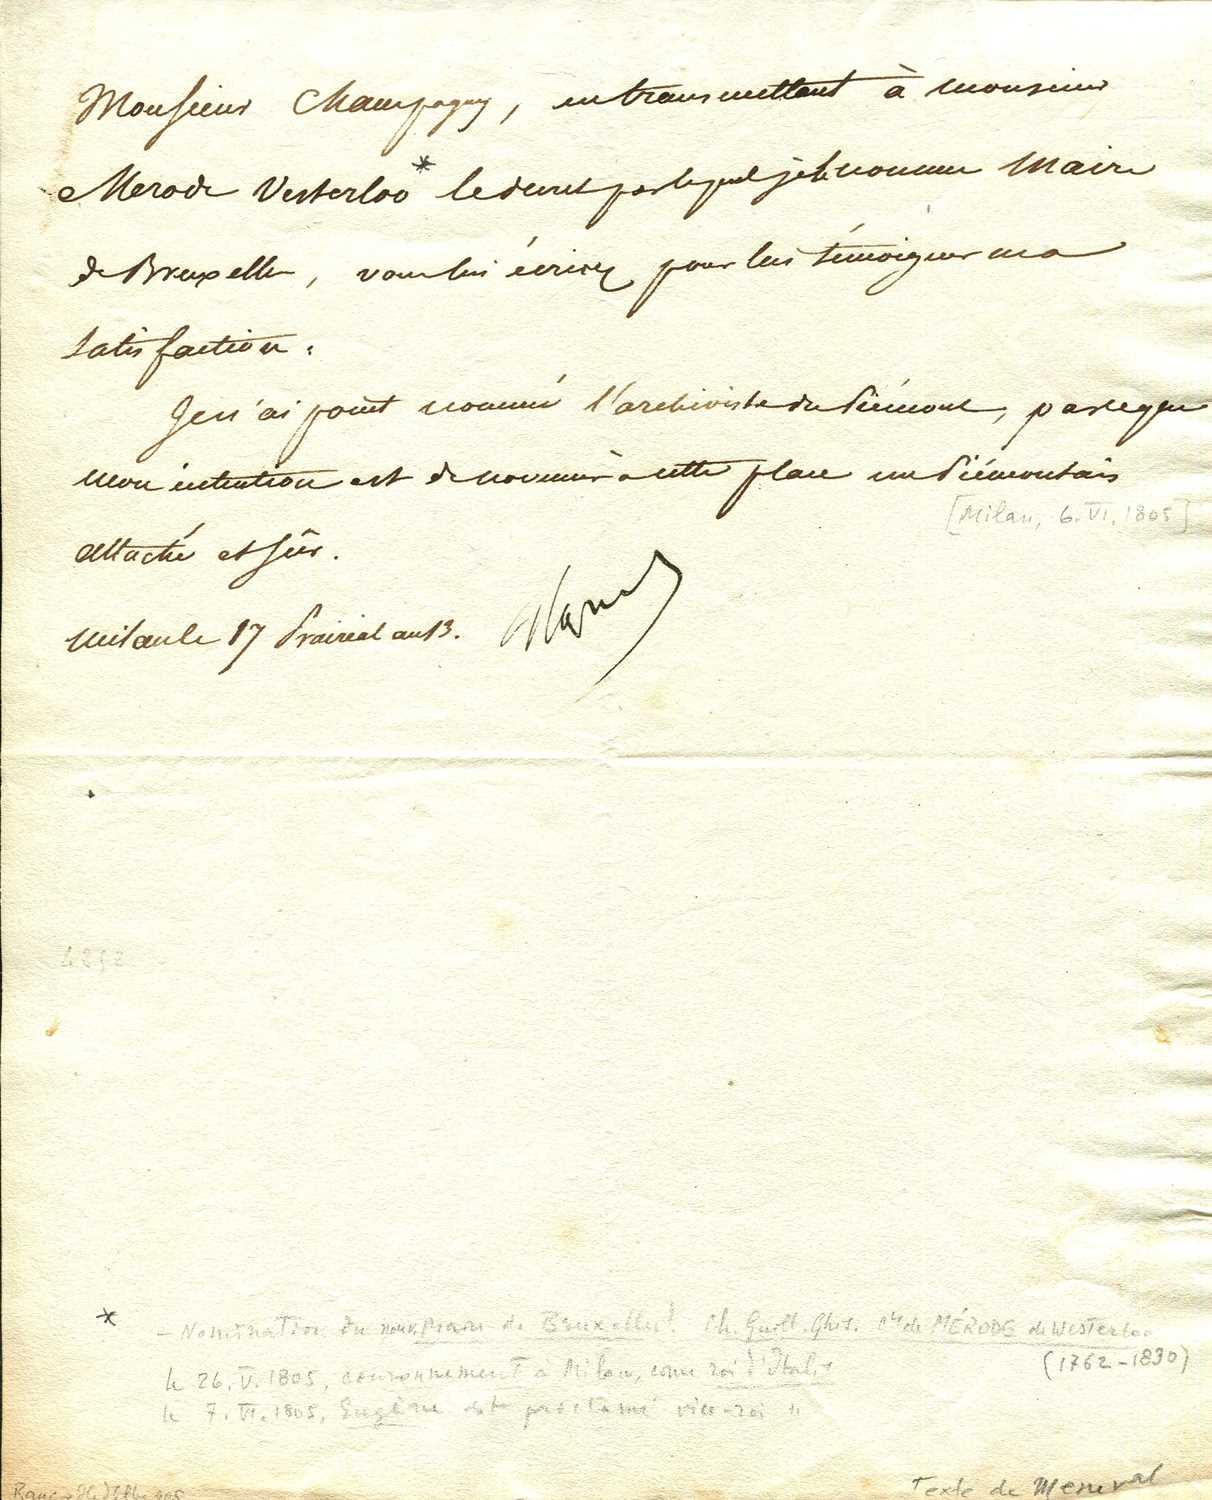 Monsieur Champagny, en transmettant à monsieur
Merode Vesterloo * le decret par lequel je le nomme Maire
de Bruxelles, vous lui écrirez pour lui témoigner ma
satisfaction.
Je n'ai point nommé l'archiviste du Piémont, parceque
mon intention est de nommer à cette place un Piémontais
[Milan, 6.VI.1805]
attaché et sûr.
Milan le 17 Prairial an 13.
* - Nomination du nouv. maire de Bruxelles: Ch. Guill. Ghis. Cte de MÉRODE de Westerloo
(1762-1830)
le 26.V.1805, couronnement à Milan, comme roi d'Italie
le 7.VI.1805, Eugène est proclamé vice-roi "
Texte de Meneval